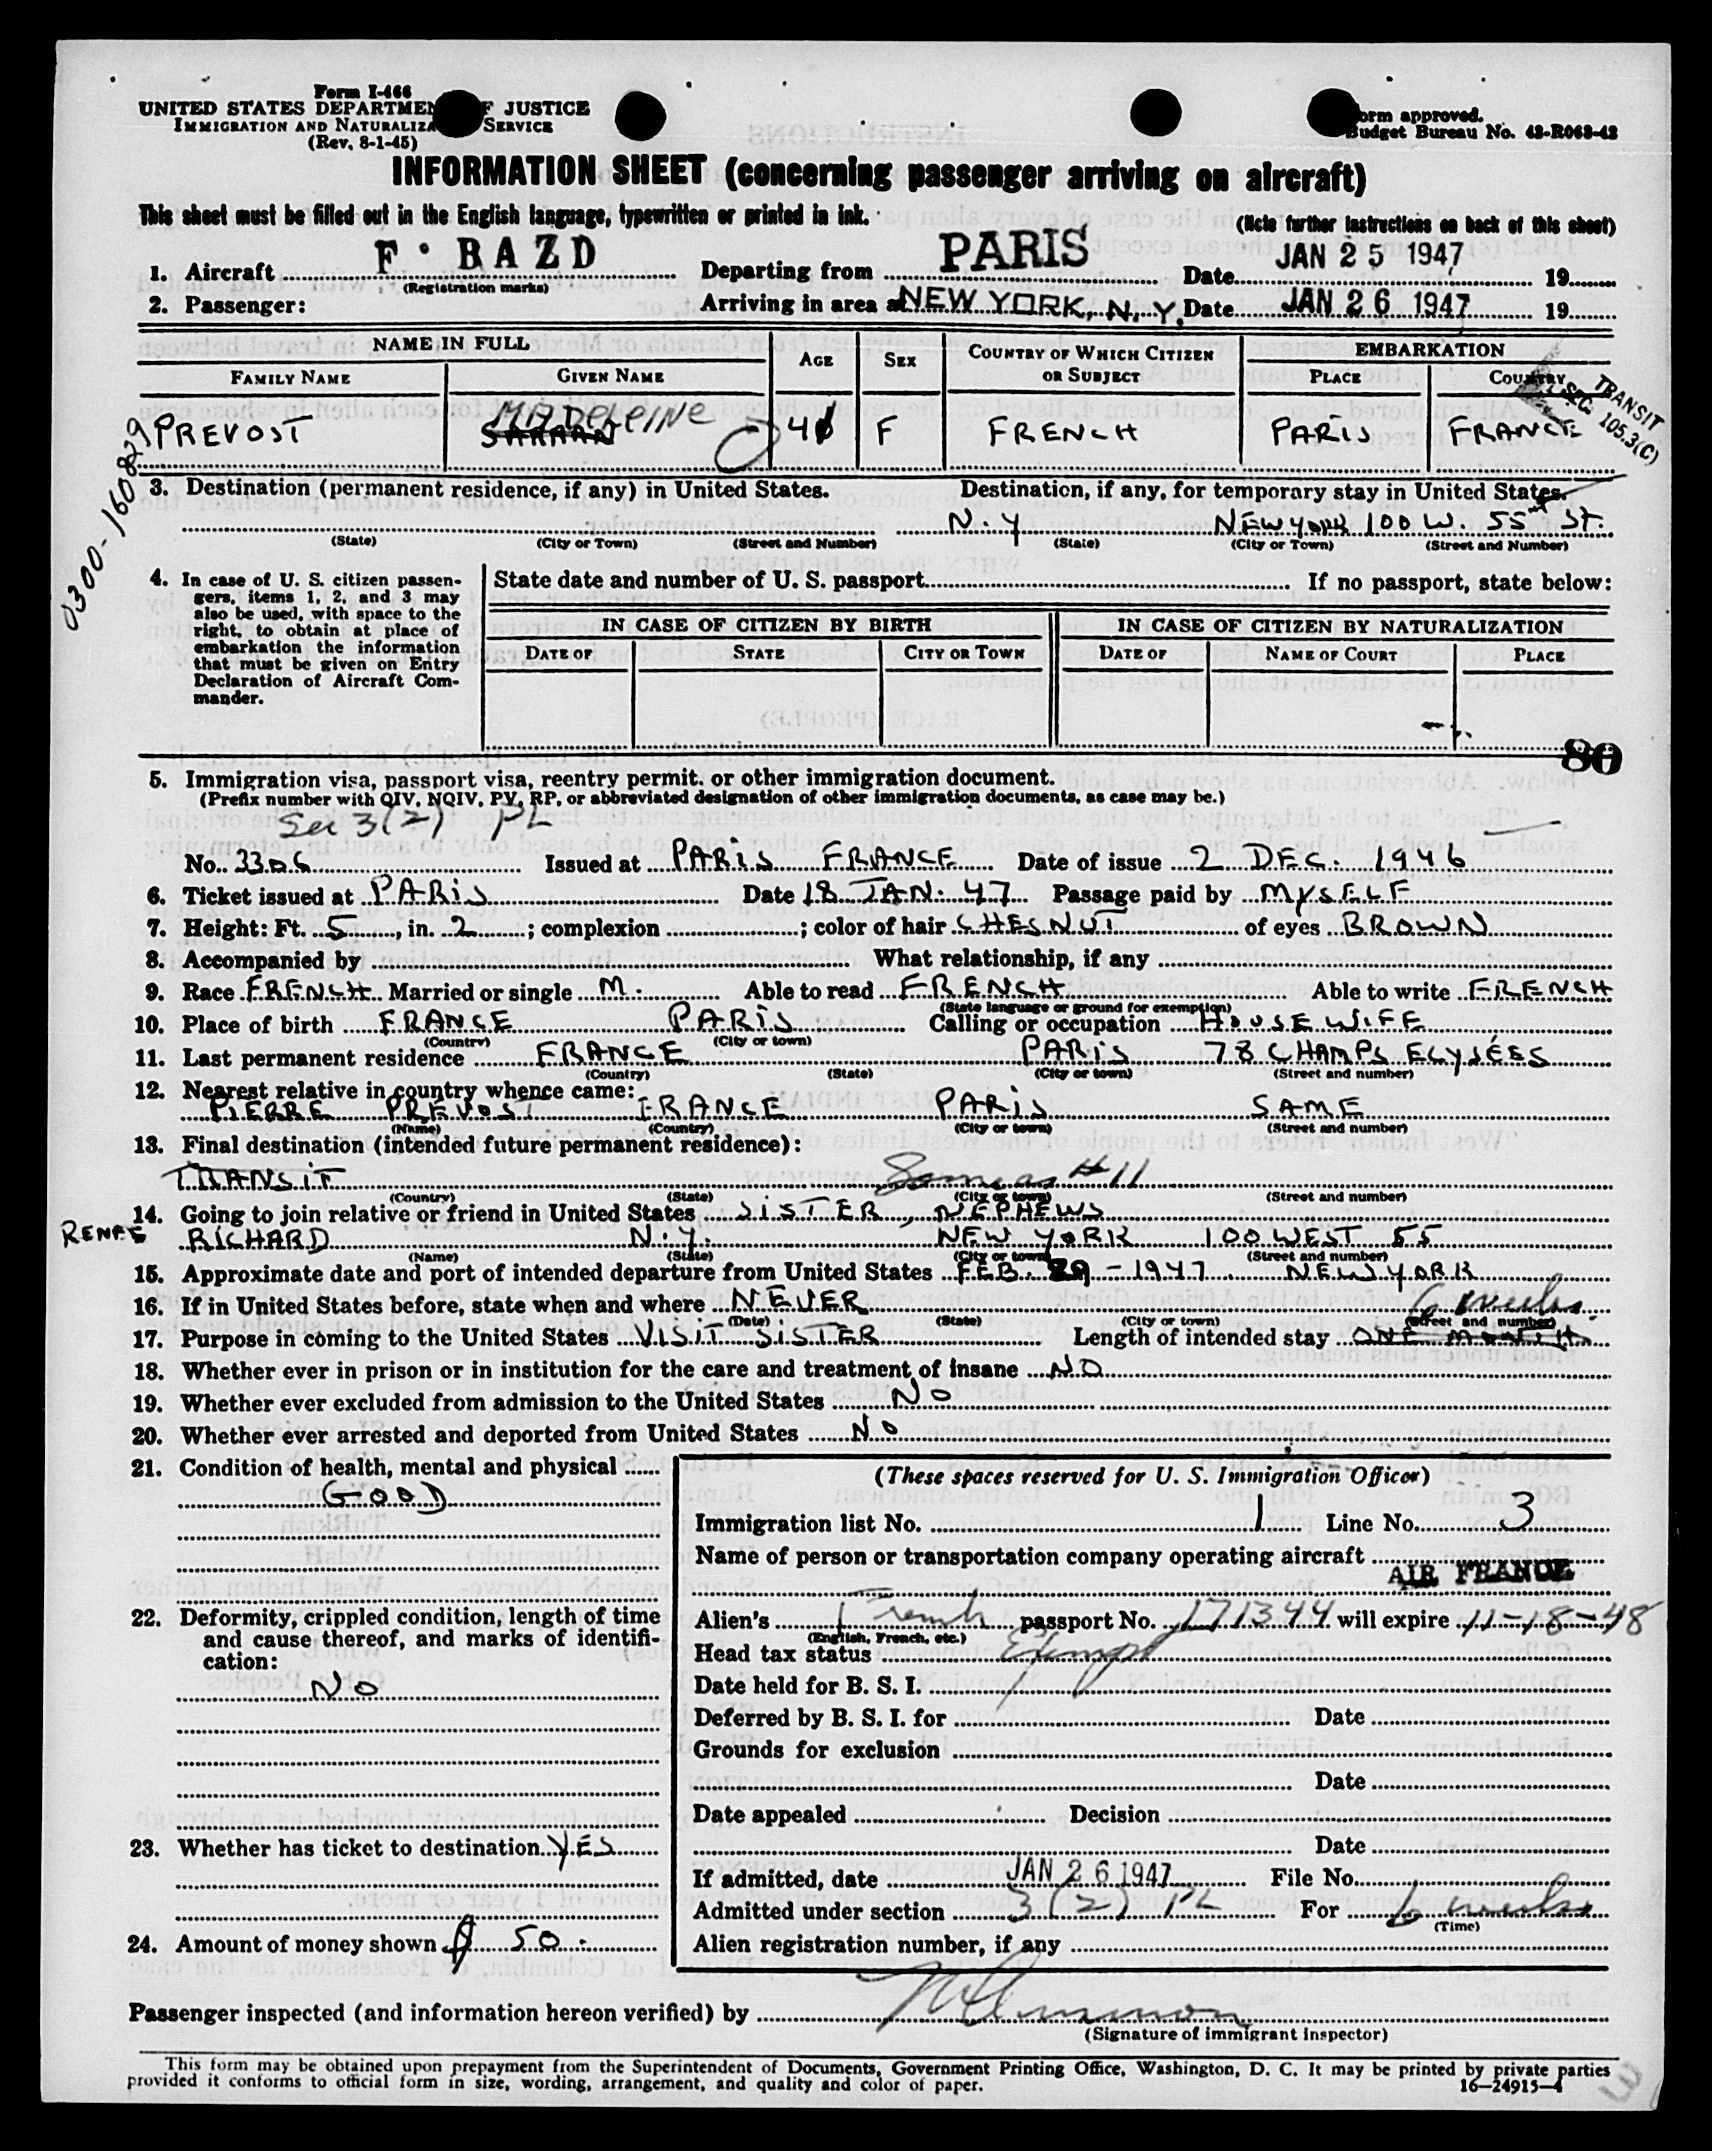 Form I-466
UNITED STATES DEPARTMENT OF JUSTICE
IMMIGRATION AND NATURALIZATION SERVICE
(Rev. 8-1-45)
Form approved.
Budget Bureau No. 43-R063-42
INFORMATION SHEET (concerning passenger arriving on aircraft)
This sheet must be filled out in the English language, typewritten or printed in ink.
(Note further instructions on back of this sheet)
1. Aircraft F·BAZD Departing from PARIS Date JAN 25 1947 19
(Registration marks)
2. Passenger: Arriving in area at NEW YORK, N.Y. Date JAN 26 1947 19
NAME IN FULL AGE SEX COUNTRY OF WHICH CITIZEN OR SUBJECT EMBARKATION
FAMILY NAME GIVEN NAME PLACE COUNTRY
TRANSIT
SEC. 105.3(C)
MADELEINE
PREVOST F FRENCH PARIS FRANCE
0300-160829
3. Destination (permanent residence, if any) in United States. Destination, if any, for temporary stay in United States.
N.Y NEW YORK 100 W. 55 St.
(State) (City or Town) (Street and Number) (State) (City or Town) (Street and Number)
4. In case of U. S. citizen passen-
gers, items 1, 2, and 3 may
also be used, with space to the
right, to obtain at place of
embarkation the information
that must be given on Entry
Declaration of Aircraft Com-
mander.
State date and number of U. S. passport If no passport, state below:
IN CASE OF CITIZEN BY BIRTH IN CASE OF CITIZEN BY NATURALIZATION
DATE OF STATE CITY OR TOWN DATE OF NAME OF COURT PLACE
5. Immigration visa, passport visa, reentry permit, or other immigration document.
(Prefix number with QIV, NQIV, PV, RP, or abbreviated designation of other immigration documents, as case may be.)
Sec 3(2) PL
No. 3306 Issued at PARIS FRANCE Date of issue 2 DEC. 1946
6. Ticket issued at PARIS Date 18 JAN. 47 Passage paid by MYSELF
7. Height: Ft. 5, in. 2; complexion ; color of hair CHESNUT of eyes BROWN
8. Accompanied by What relationship, if any
9. Race FRENCH Married or single M. Able to read FRENCH Able to write FRENCH
(State language or ground for exemption)
10. Place of birth FRANCE PARIS Calling or occupation HOUSEWIFE
(Country) (City or town)
11. Last permanent residence FRANCE PARIS 78 CHAMPS ELYSÉES
(Country) (State) (City or town) (Street and number)
12. Nearest relative in country whence came:
PIERRE PREVOST FRANCE PARIS SAME
(Name) (Country) (City or town) (Street and number)
13. Final destination (intended future permanent residence):
TRANSIT Same as #11
(Country) (State) (City or town) (Street and number)
14. Going to join relative or friend in United States SISTER, NEPHEWS
RENEE RICHARD N.Y. NEW YORK 100 WEST 55
(Name) (State) (City or town) (Street and number)
15. Approximate date and port of intended departure from United States FEB. -1947 NEW YORK
16. If in United States before, state when and where NEVER
(Date) (State) (City or town) (Street and number)
6 weeks
17. Purpose in coming to the United States VISIT SISTER Length of intended stay ONE MONTH
18. Whether ever in prison or in institution for the care and treatment of insane NO
19. Whether ever excluded from admission to the United States NO
20. Whether ever arrested and deported from United States NO
21. Condition of health, mental and physical
GOOD
22. Deformity, crippled condition, length of time
and cause thereof, and marks of identifi-
cation:
NO
23. Whether has ticket to destination YES
24. Amount of money shown $ 50.
(These spaces reserved for U. S. Immigration Officer)
Immigration list No. 1 Line No. 3
Name of person or transportation company operating aircraft
AIR FRANCE
Alien's French passport No. 171344 will expire 11-18-48
(English, French, etc.)
Head tax status Exempt
Date held for B. S. I.
Deferred by B. S. I. for Date
Grounds for exclusion
Date
Date appealed Decision
Date
If admitted, date JAN 26 1947 File No.
Admitted under section 3(2) PL For 6 weeks
(Time)
Alien registration number, if any
Passenger inspected (and information hereon verified) by
(Signature of immigrant inspector)
This form may be obtained upon prepayment from the Superintendent of Documents, Government Printing Office, Washington, D. C. It may be printed by private parties
provided it conforms to official form in size, wording, arrangement, and quality and color of paper.
16—24915-4